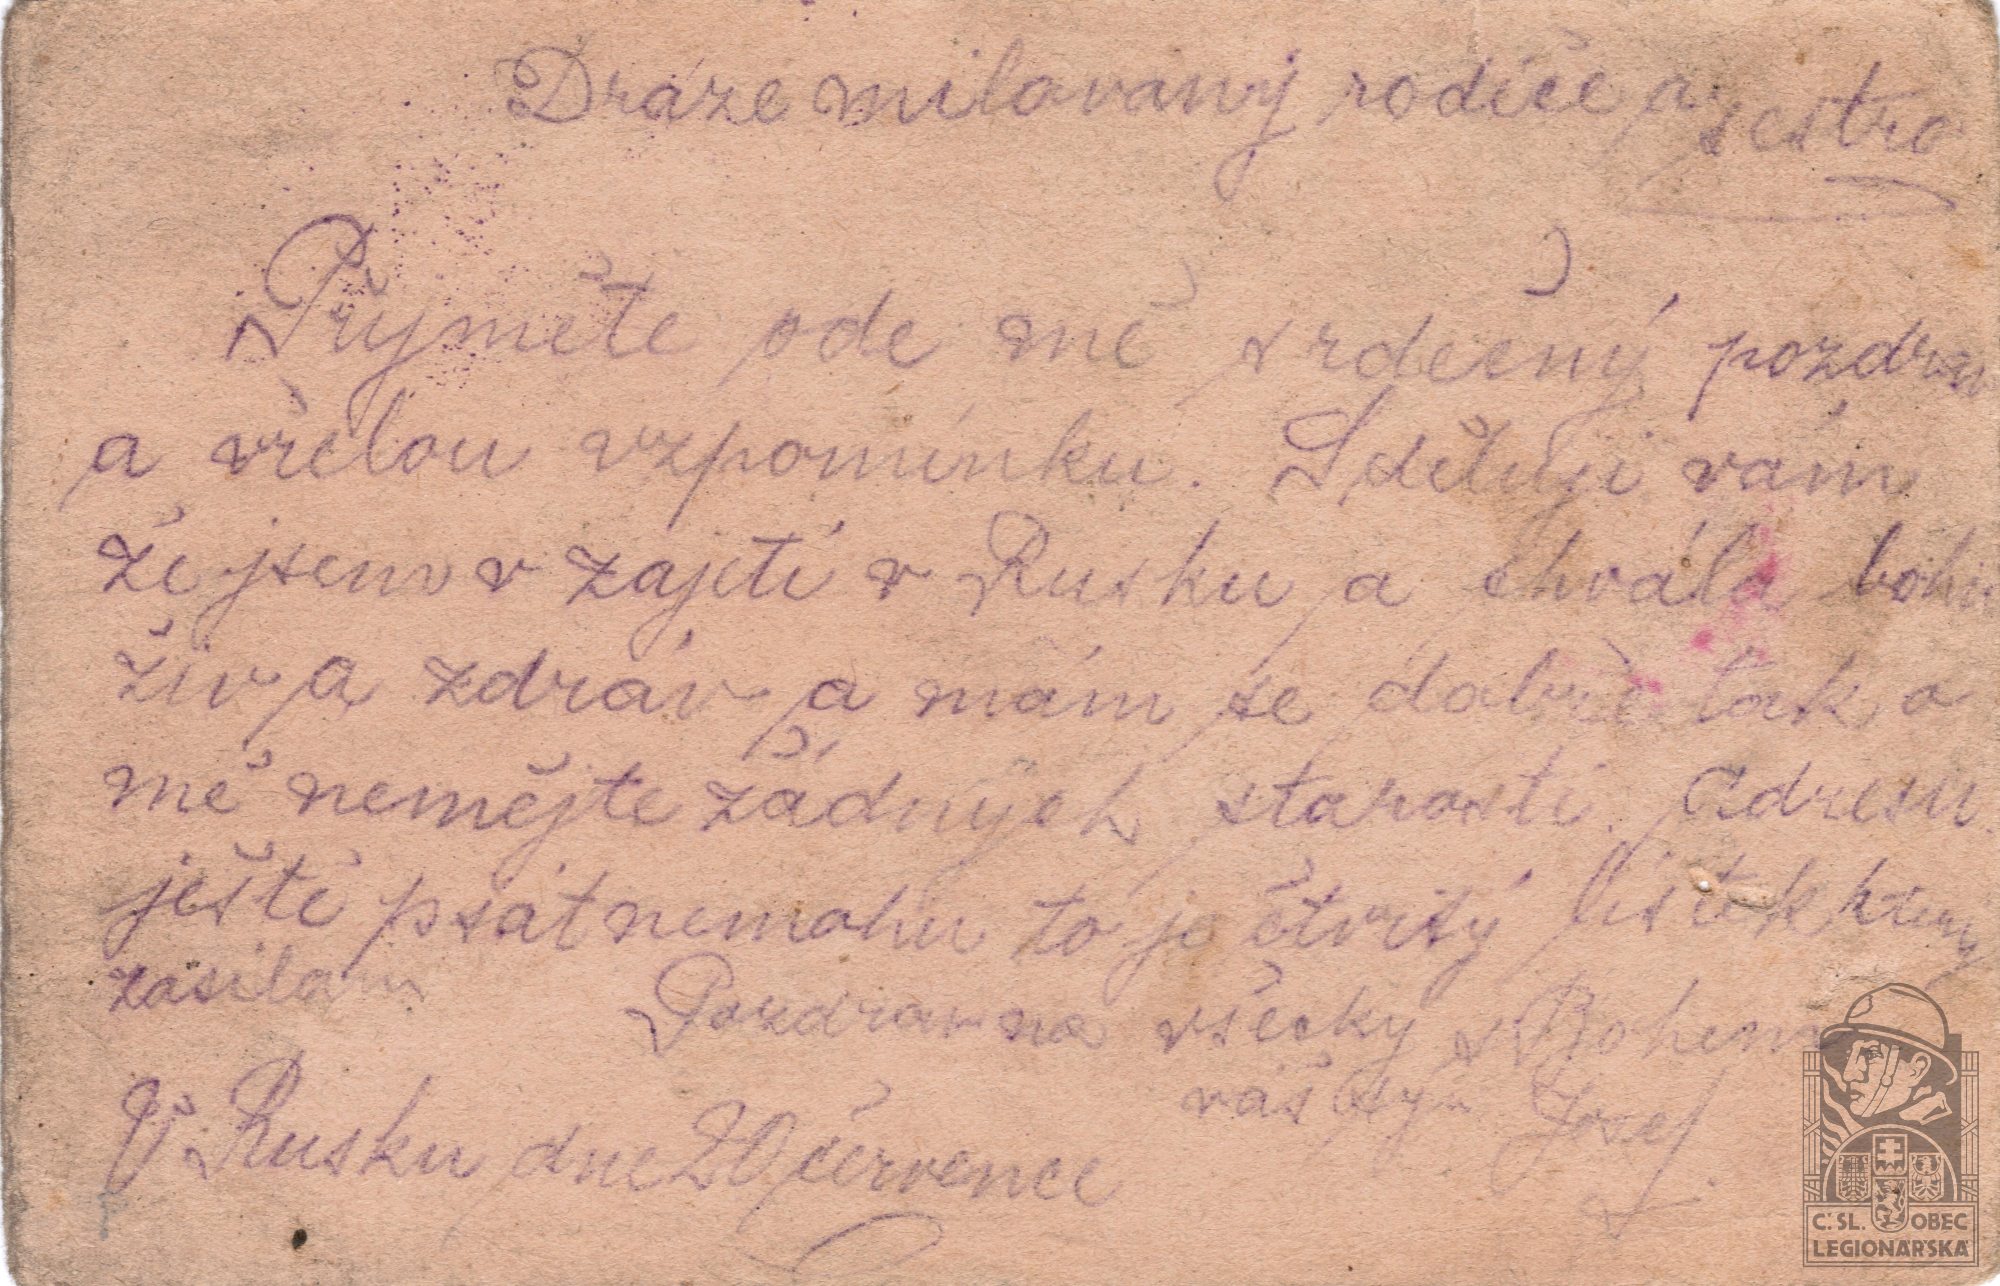 Dráze milovaný rodiče a sestro
Přijměte ode mě srdečný pozdrav
a vřelou vzpomínku. Sděluji vám
že jsem v zajetí v Rusku a chvála bohu
živ a zdráv a mám se dobře tak o
mě nemějte žádných starosti. adresu
ještě psát nemohu to je čtvrtý lístek který
zasilam Pozdrav na všecky s Bohem
váš syn Josef.
V Rusku dne 20 července
Č.SL. OBEC
LEGIONÁŘSKÁ